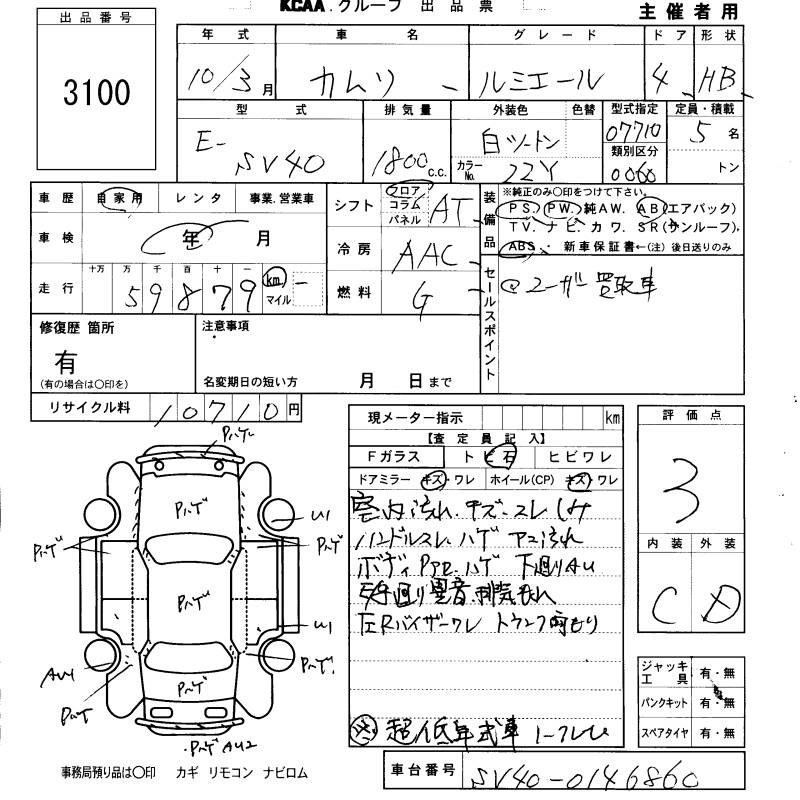 KCAA.グループ 出品票
主催者用
出品番号
3100
年式 車名 グレード ドア 形状
10/3月 カムリ ルミエール 4 HB
型式 排気量 外装色 色替 型式指定 定員・積載
E-SV40 1800c.c. 白ツートン 07710 5名
カラーNo. 22Y 類別区分 0060 トン
車歴 自家用 レンタ 事業.営業車
車検 年 月
走行 十万 万 千 百 十 一
59879 km マイル
シフト フロア コラム パネル AT
冷房 AAC
燃料 G
装備品
※純正のみ○印をつけて下さい。
PS. PW. 純AW. AB(エアバック)
TV. ナビ. カワ. SR(サンルーフ).
ABS. 新車保証書←(注)後日送りのみ
セールスポイント
ユーザー買取車
修復歴 箇所
有
(有の場合は○印を)
注意事項
名変期日の短い方 月 日まで
リサイクル料 10710円
現メーター指示 km
【査定員記入】
Fガラス トビ石 ヒビワレ
ドアミラー キズ ワレ ホイール(CP) キズ ワレ
室内汚れ.キズ.スレ シミ
ハンドルスレ.ハゲ
ボディ ハゲ 下廻りAU
左Rバイザーワレ
超低年式車
評価点
3
内装 外装
C D
ジャッキ工具 有・無
パンクキット 有・無
スペアタイヤ 有・無
車台番号 SV40-0146860
Pハゲ
Pハゲ
Pハゲ
Pハゲ
U1
Pハゲ
Pハゲ
U1
AU1
Pハゲ
Pハゲ
Pハゲ
Pハゲ AU2
事務局預り品は○印 カギ リモコン ナビロム